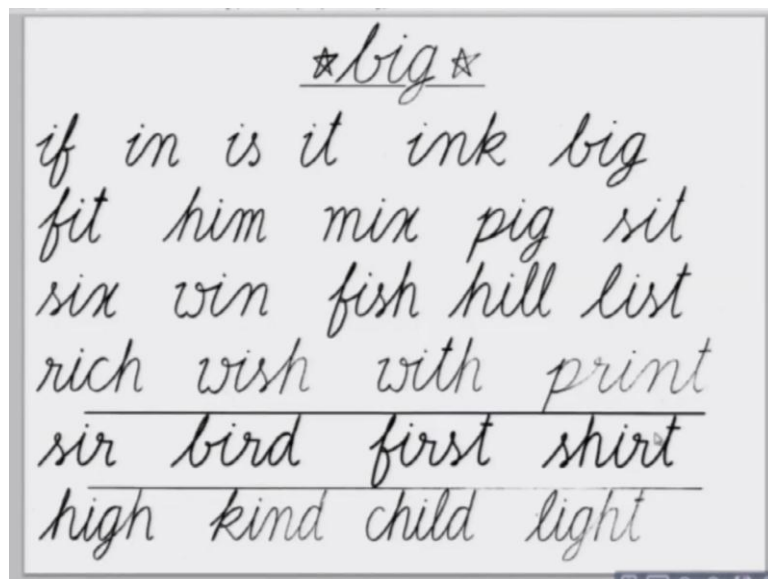 ☆big☆
if in is it ink big
fit him mix pig sit
six win fish hill list
rich wish with print
sir bird first shirt
high kind child light